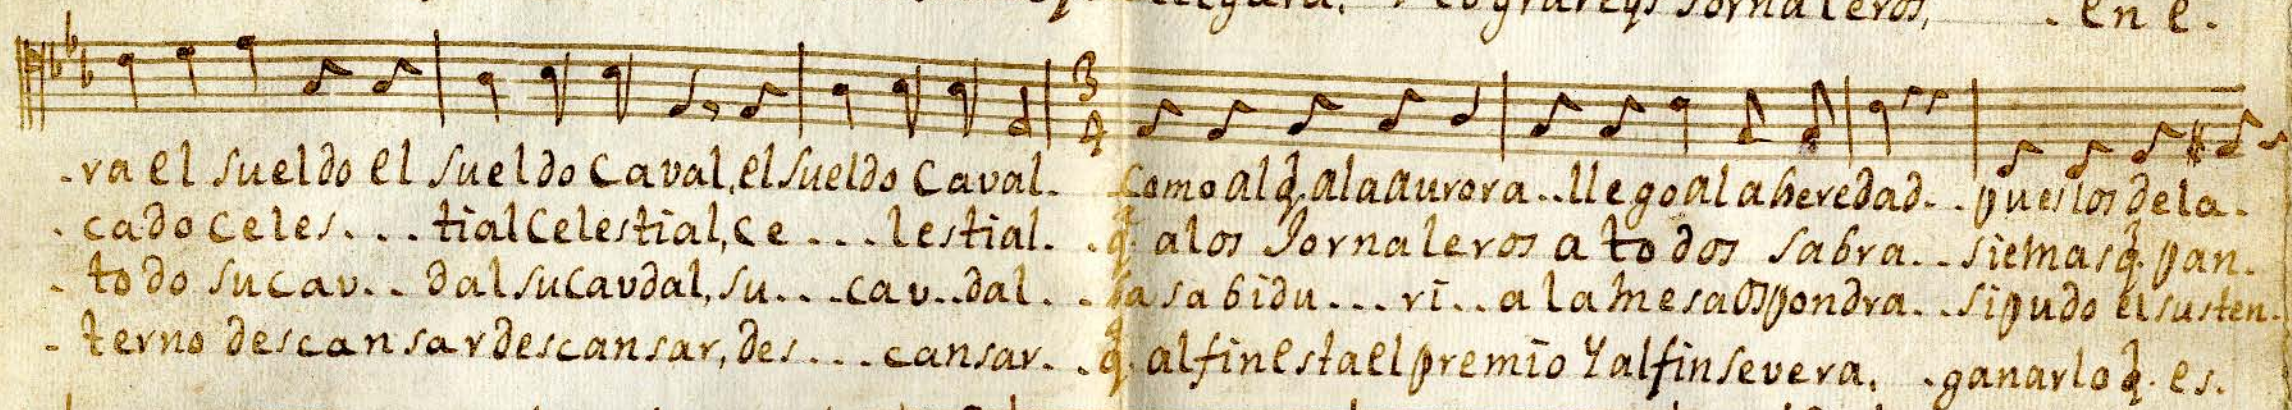 llegara. Y lograreys Jornaleros, . en e.
3
4
.ra el sueldo el sueldo Caval, el sueldo Caval. Como al q̃. ala aurora.. llego ala heredad.. pues los dela.
. cado Celes... tial Celestial, Ce... lestial. . q̃. alos Jornaleros a todos sabra.. siemas q̃. pan.
. todo su cau.. dal su Caudal, su... cau..dal. . la sabidu... ri.. a la mesa os pondra.. si pudo el susten.
. terno descansar descansar, des... cansar. . q̃. al fin esta el premio Y al fin se vera. . ganarlo q̃. es.